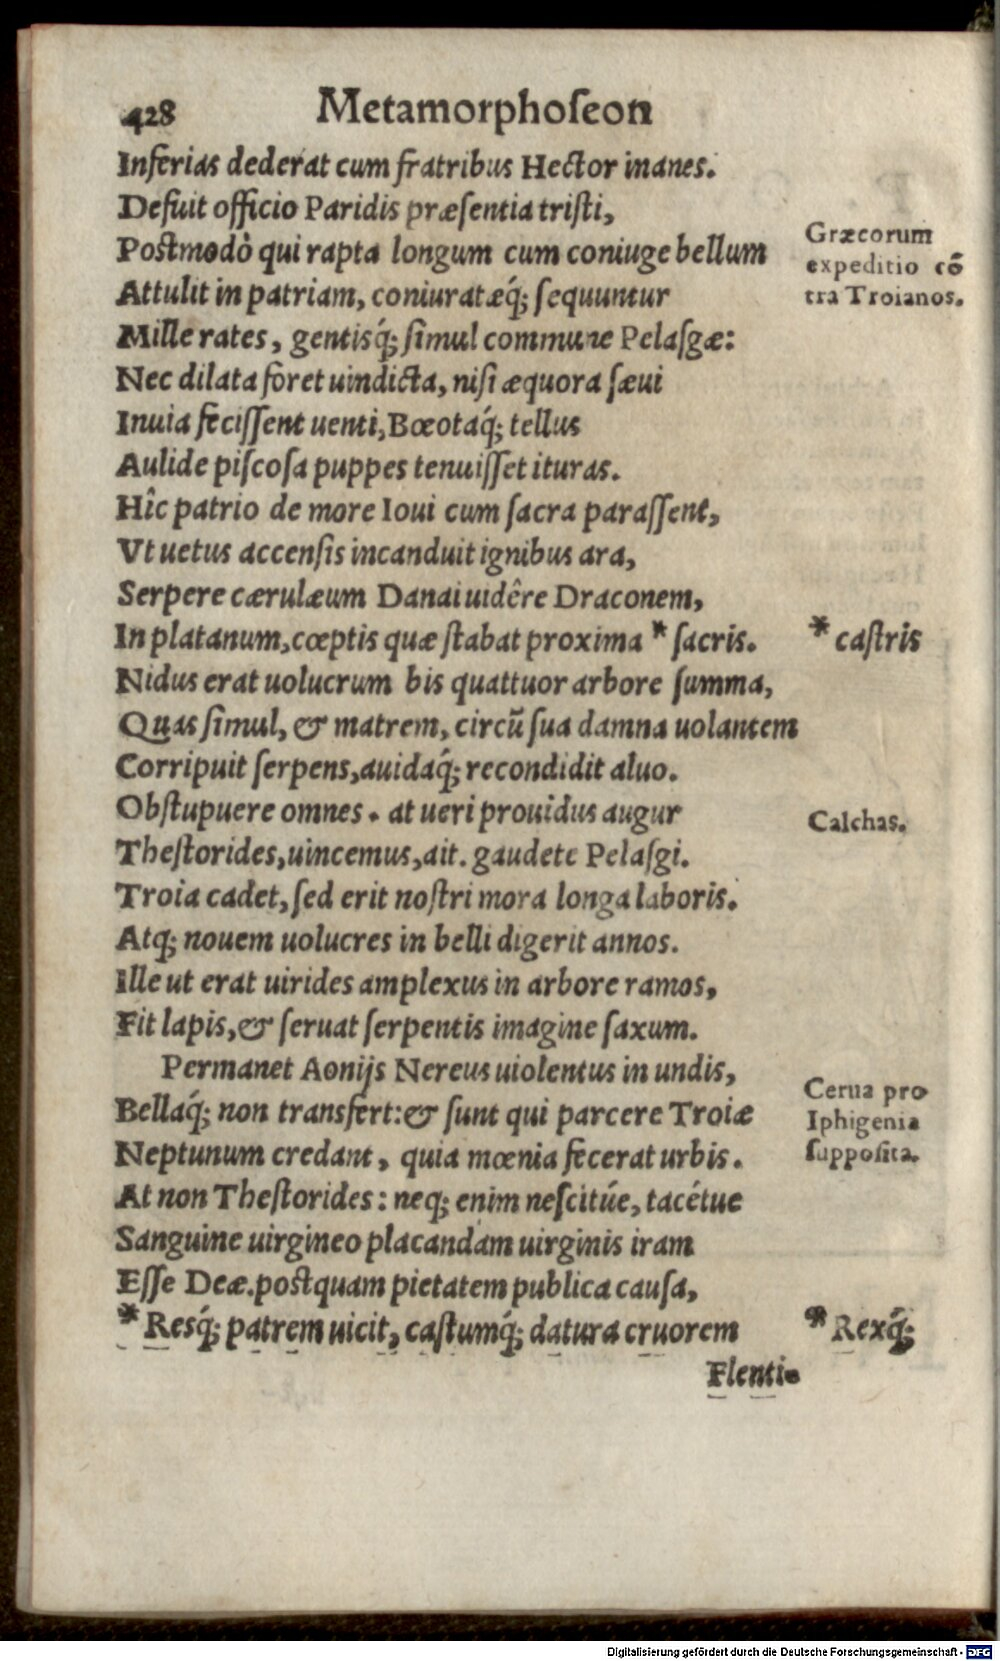 428 Metamorphoſeon
Inferias dederat cum fratribus Hector inanes.
Defuit officio Paridis præſentia triſti,
Poſtmodò qui rapta longum cum coniuge bellum
Attulit in patriam, coniuratæq́; ſequuntur
Mille rates, gentisq́; ſimul commune Pelaſgæ:
Nec dilata foret uindicta, niſi æquora ſæui
Inuia feciſſent uenti, Bœotaq́; tellus
Aulide piſcoſa puppes tenuiſſet ituras.
Hîc patrio de more Ioui cum ſacra paraſſent,
Vt uetus accenſis incanduit ignibus ara,
Serpere cærulæum Danai uidêre Draconem,
In platanum, cœptis quæ ſtabat proxima * ſacris.
Nidus erat uolucrum bis quattuor arbore ſumma,
Quas ſimul, & matrem, circũ ſua damna uolantem
Corripuit ſerpens, auidaq́; recondidit aluo.
Obſtupuere omnes. at ueri prouidus augur
Theſtorides, uincemus, ait. gaudete Pelaſgi.
Troia cadet, ſed erit noſtri mora longa laboris.
Atq; nouem uolucres in belli digerit annos.
Ille ut erat uirides amplexus in arbore ramos,
Fit lapis, & ſeruat ſerpentis imagine ſaxum.
Permanet Aonijs Nereus uiolentus in undis,
Bellaq́; non transfert: & ſunt qui parcere Troiæ
Neptunum credant, quia mœnia fecerat urbis.
At non Theſtorides: neq; enim neſcitúe, tacétue
Sanguine uirgineo placandam uirginis iram
Eſſe Deæ. poſtquam pietatem publica cauſa,
* Resq́; patrem uicit, caſtumq́; datura cruorem
Flenti-
Græcorum
expeditio cõ
tra Troianos.
* caſtris
Calchas.
Cerua pro
Iphigenia
ſuppoſita.
* Rexq́;
Digitalisierung gefördert durch die Deutsche Forschungsgemeinschaft - DFG